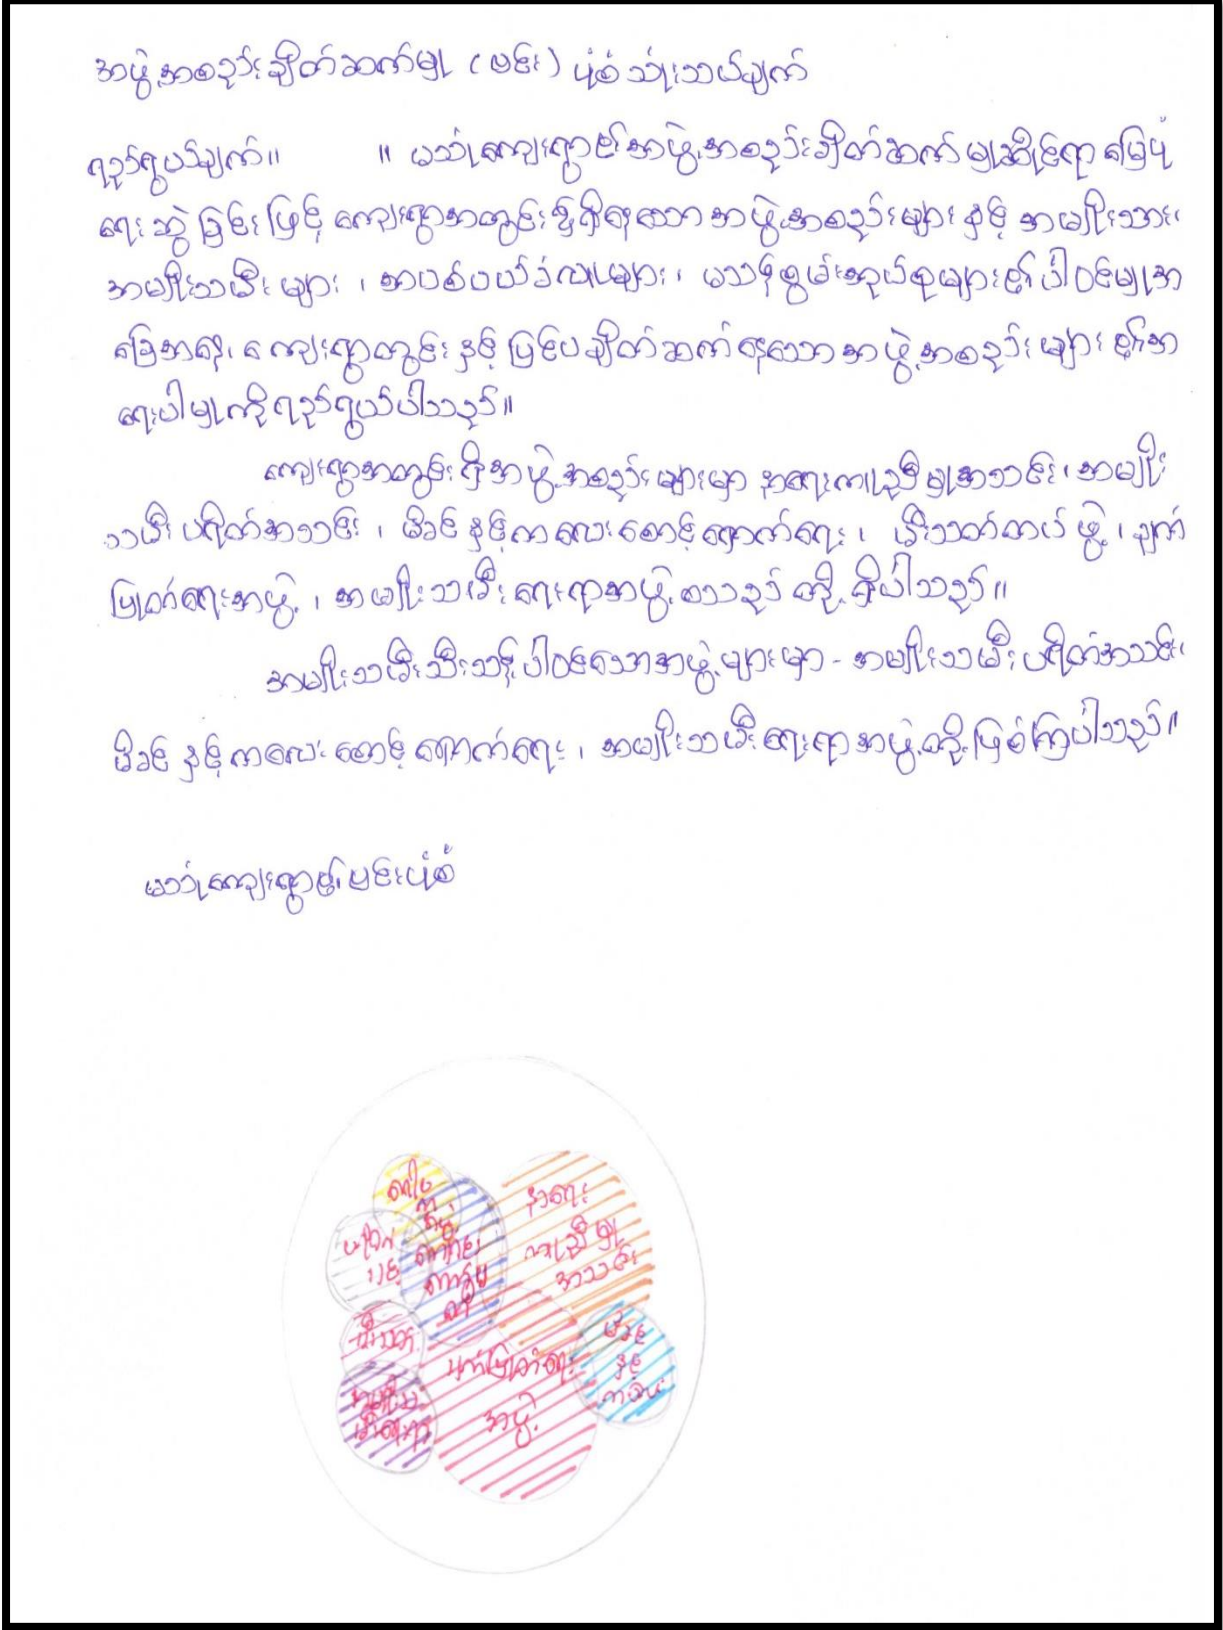 အဖွဲ့အစည်းချိတ်ဆက်မှု (ဗင်း) ပုံစံ သုံးသပ်ချက်
ရည်ရွယ်ချက်။ ။ မသုံကျေးရွာ၏အဖွဲ့အစည်းချိတ်ဆက်မှုဆိုင်ရာ မြေပုံ
ရေးဆွဲခြင်းဖြင့် ကျေးရွာအတွင်း၌ရှိနေသော အဖွဲ့အစည်းများ နှင့် အမျိုးသား၊
အမျိုးသမီးများ ၊ အပစ်ပယ်ခံလူများ ၊ မသန်စွမ်းအုပ်စုများ၏ ပါဝင်မှုအ
ခြေအနေ၊ ကျေးရွာတွင်း နှင့် ပြင်ပ ချိတ်ဆက်နေသော အဖွဲ့အစည်းများ ၏အ
ရေးပါမှုကို ရည်ရွယ်ပါသည်။
ကျေးရွာအတွင်းရှိအဖွဲ့အစည်းများမှာ နာရေးကူညီမှုအသင်း ၊ အမျိုး
သမီး ပရိတ်အသင်း ၊ မိခင် နှင့်ကလေးစောင့်ရှောက်ရေး ၊ မီးသတ်တပ်ဖွဲ့ ၊ ပျက်
ပြုတ်ရေးအဖွဲ့ ၊ အမျိုးသမီးရေးရာအဖွဲ့ စသည် တို့ ရှိပါသည်။
အမျိုးသမီးသီးသန့်ပါဝင်သောအဖွဲ့များမှာ - အမျိုးသမီးပရိတ်အသင်း၊
မိခင် နှင့်ကလေးစောင့်ရှောက်ရေး ၊ အမျိုးသမီးရေးရာအဖွဲ့တို့ဖြစ်ကြပါသည်။
မသုံကျေးရွာ၏ ဗင်းပုံစံ
နာရေး
ကူညီမှု
အသင်း
မီးသတ်
မိခင်
နှင့်
ကလေး
အဖွဲ့